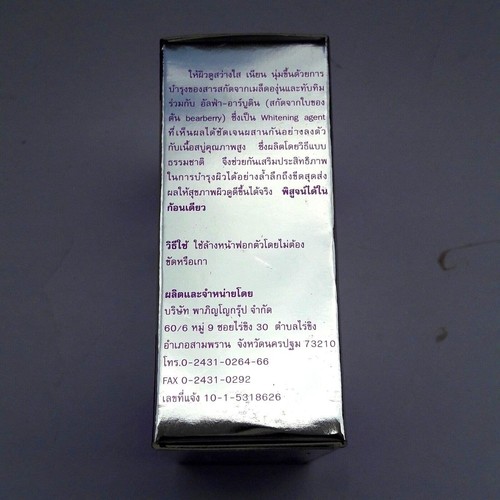 ให้ผิวดูสว่างใส เนียน นุ่มขึ้นด้วยการ
บำรุงของสารสกัดจากเมล็ดองุ่นและทับทิม
ร่วมกับ อัลฟ่า-อาร์บูติน (สกัดจากใบของ
ต้น bearberry) ซึ่งเป็น Whitening agent
ที่เห็นผลได้ชัดเจนผสานกันอย่างลงตัว
กับเนื้อสบู่คุณภาพสูง ซึ่งผลิตโดยวิธีแบบ
ธรรมชาติ จึงช่วยกันเสริมประสิทธิภาพ
ในการบำรุงผิวได้อย่างล้ำลึกถึงขีดสุดส่ง
ผลให้สุขภาพผิวดูดีขึ้นได้จริง พิสูจน์ได้ใน
ก้อนเดียว
วิธีใช้ ใช้ล้างหน้าฟอกตัวโดยไม่ต้อง
ขัดหรือเกา
ผลิตและจำหน่ายโดย
บริษัท พาภิญโญกรุ้ป จำกัด
60/6 หมู่ 9 ซอยไร่ขิง 30 ตำบลไร่ขิง
อำเภอสามพราน จังหวัดนครปฐม 73210
โทร.0-2431-0264-66
FAX 0-2431-0292
เลขที่แจ้ง 10-1-5318626